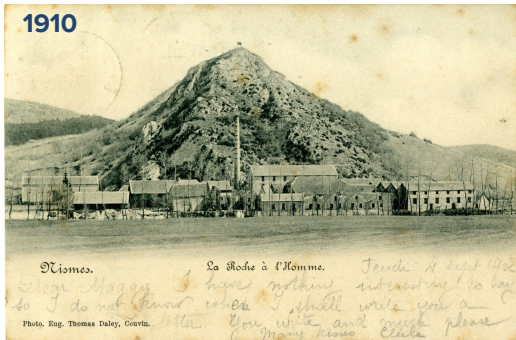 1910
Nismes.
La Roche à l'Homme.
Jeudi 4 Sept 1902
Dear Maggy I have nothing interesting to say
so I do not know when I shall write you a
letter You write and much please
Many kisses
Photo. Eug. Thomas Daley, Couvin.